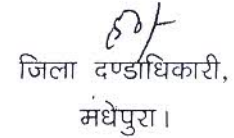 जिला दण्डाधिकारी,
मधेपुरा।